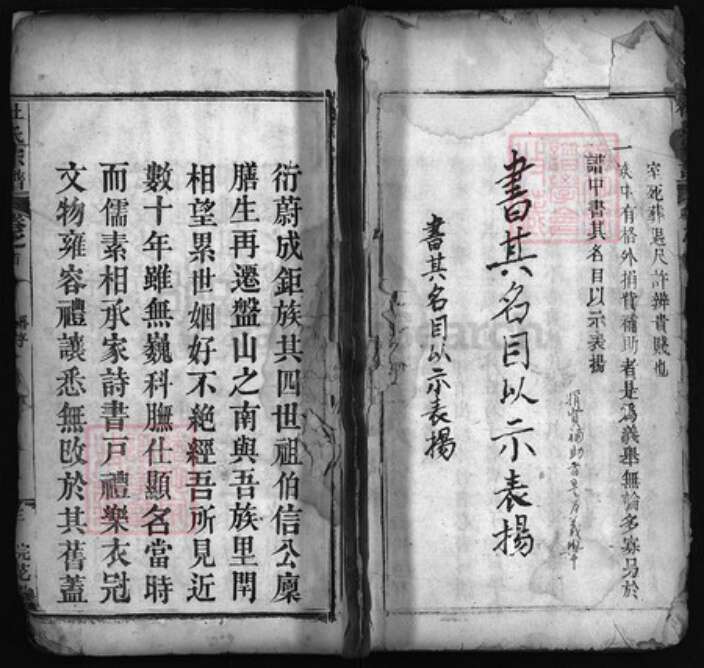 宰死葬遇尺許辨貴賤也
一族中有格外捐貲補助者是為義舉無論多寡另於
譜中書其名目以示表揚
捐貲補助者是為義舉
書其名目以示表揚
書其名目以示表揚
衍蔚成鉅族其四世祖伯信公廩
膳生再遷盤山之南與吾族里閈
相望累世姻好不絕經吾所見近
數十年雖無巍科膴仕顯名當時
而儒素相承家詩書戶禮樂衣冠
文物雍容禮讓悉無改於其舊蓋
杜氏宗譜 卷之首